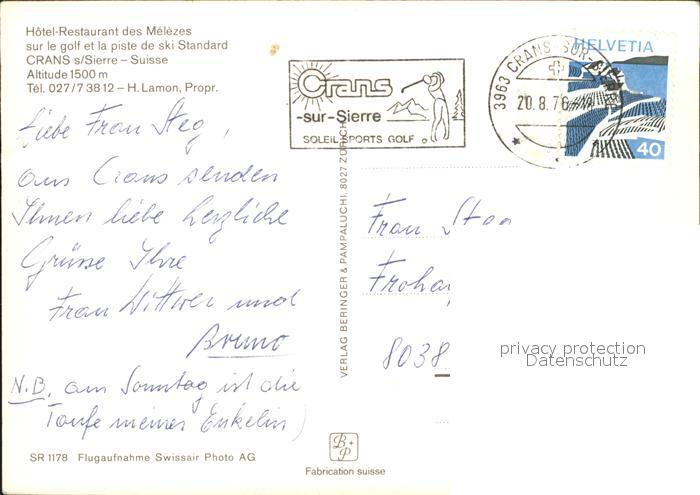 Hôtel-Restaurant des Mélèzes
sur le golf et la piste de ski Standard
CRANS s/Sierre – Suisse
Altitude 1500 m
Tél. 027/7 38 12 – H. Lamon, Propr.
Crans
-sur-Sierre
SOLEIL SPORTS GOLF
3963 CRANS-SUR-SIERRE
20.8.76
HELVETIA
40
Liebe Frau Steg,
aus Crans senden
Ihnen liebe herzliche
Grüsse Ihre
Frau Wittwer und
Bruno
N.B. am Sonntag ist die
Taufe meiner Enkelin)
VERLAG BERINGER & PAMPALUCHI, 8027 ZÜRICH
Frau
8038
privacy protection
Datenschutz
SR 1178 Flugaufnahme Swissair Photo AG
B+P
Fabrication suisse